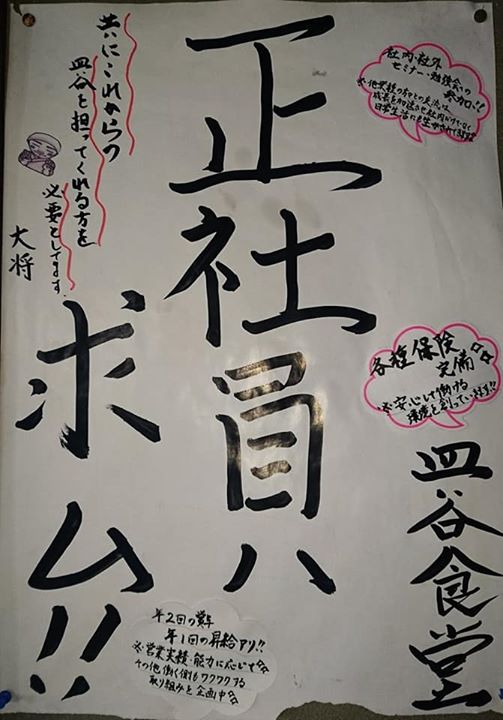 社内・社外
セミナー・勉強会の
参加!!
※他業種の方々との交流は、
成長を加速させ社内だけでなく
各種保険
完備
※安心して働ける
環境を創っています!!
皿谷食堂
正社員ハ
求ム!!
共にこれからの
皿谷を担ってくれる方を
必要としてます。
大将
年2回の賞与
年1回の昇給アリ!!
※営業実績・能力に応じて
その他働く側もワクワクする
取り組みを企画中